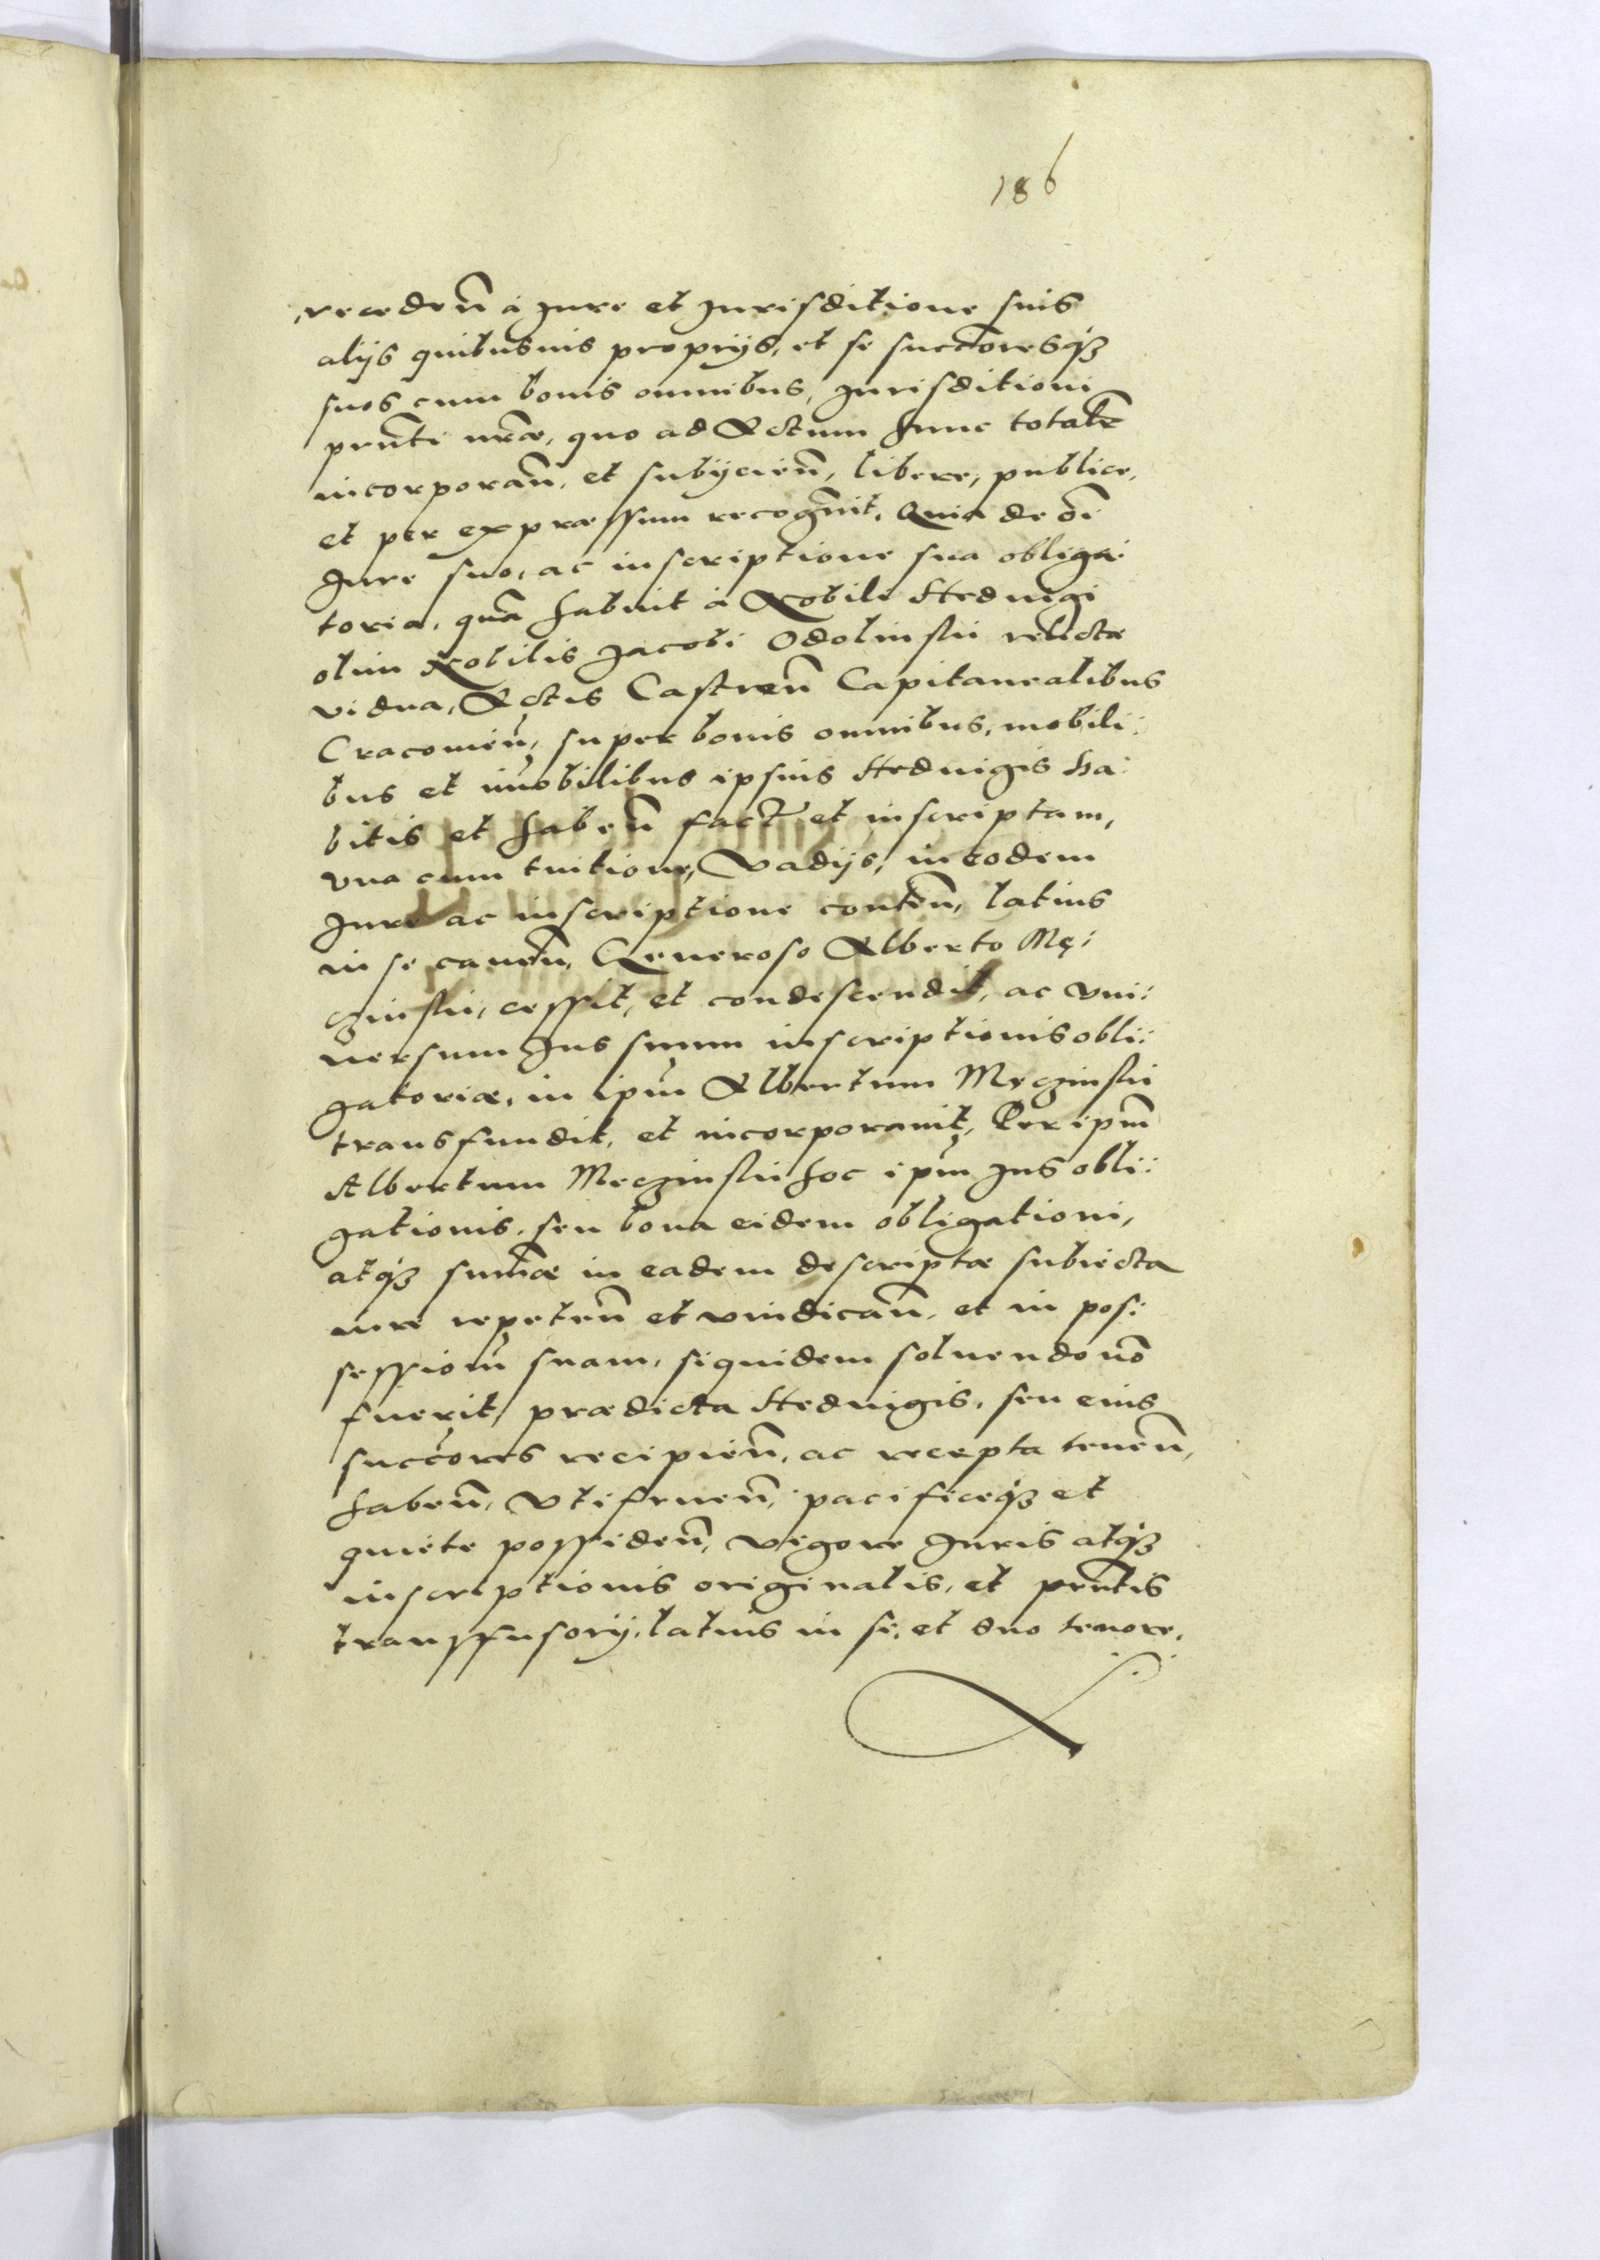 186
recedeñ à Jure et Jurisditione suis
alijs quibusuis proprijs, et se succ̃oresqꝫ
suos cum bonis omnibus, Jurisditioni
prñti nr̃æ, quo ad Actum hunc totalẽ
incorporañ, et subijcień, libere, publice,
et per expræssum recogñit, Quia de õi
Jure suo, ac inscriptione sua obliga:
toria, quã habuit à Nobile Heduigi
olim Nobilis Jacobi Odolinskii relicta
vidua, Actis Castreñ Capitanealibus
Cracouieñ, super bonis omnibus, mobili:
bus et im̃obilibus ipsius Heduigis ha:
bitis et habeñ factã et inscriptam,
vna cum tuitione, Vadijs, in eodem
Jure ac inscriptione conteñ, latius
in se caueñ, Generoso Alberto Mę:
czinskii, cessit, et condescendit, ac vni:
uersum Jus suum inscriptionis obli:
gatoriæ, in ipm̃ Albertum Męczinskii
transfundit, et incorporauit, Per ipm̃
Albertum Meczinskii hoc ipm̃ Jus obli:
gationis, seu bona eidem obligationi,
atqꝫ sum̃æ in eadem descriptæ subiecta
iure repeteñ et vindicañ, et in pos:
sessionẽ suam, siquidem soluendo nõ
fuerit, prædicta Heduigis, seu eius
succ̃ores recipieñ, ac recepta teneñ,
habeñ, vtifrueñ, pacificeqꝫ et
quiete possideñ, vigore Juris atqꝫ
inscriptionis originalis, et prñtis
transsfusorij, latius in se, et suo tenore,